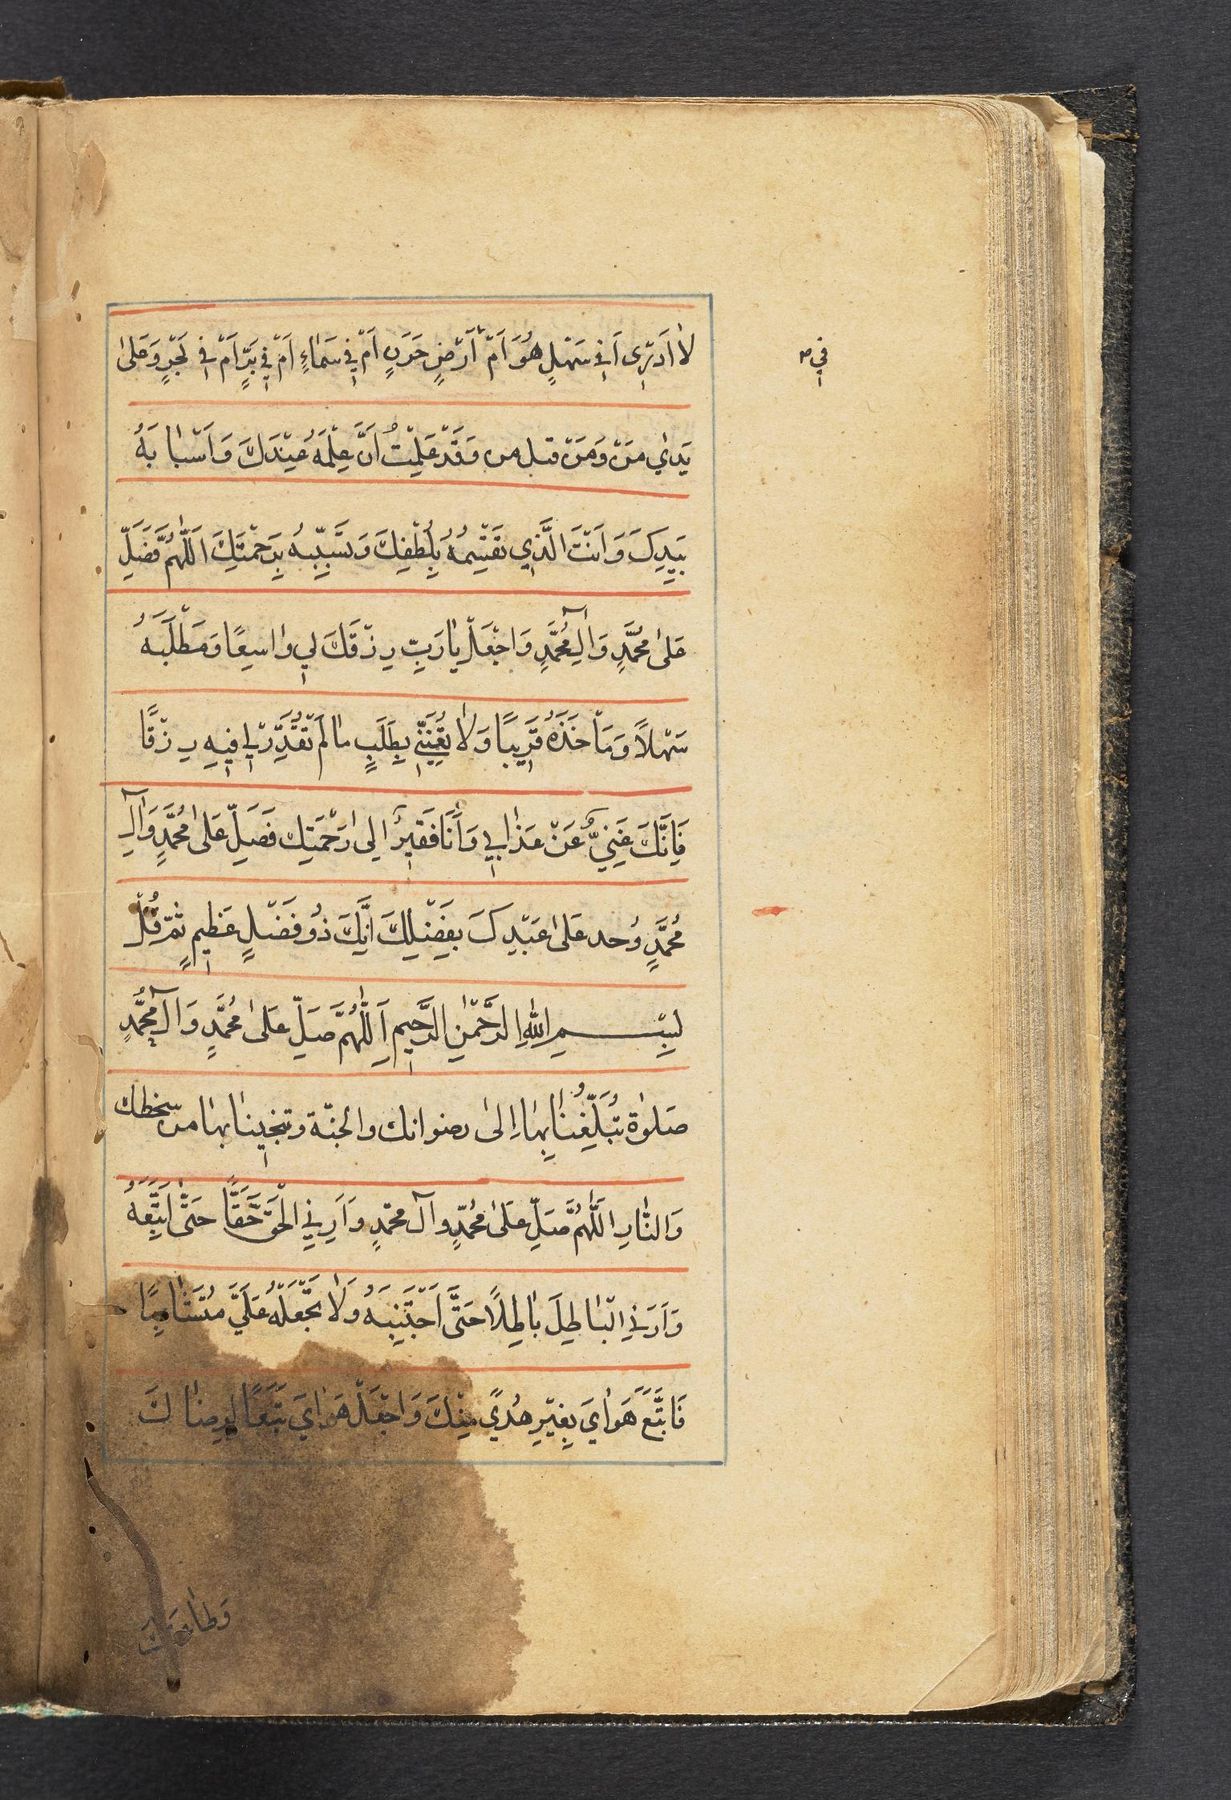 لاٰ اَدَرْی اَفِی سَهْلٍ هُوَ اَمْ اَرْضٍ حَزَنٍ اَمْ فِی سَمٰاءٍ اَمْ فِی بَرٍّ اَمْ فِی بَحْرٍ وَعَلیٰ
فی
یَدَایْ مَنْ وَمَنْ قبل من وَقَدْ عَلِمْتُ اَنَّ عِلْمَهُ عِنْدَكَ وَاَسْبٰابَهُ
بِیَدِكَ وَاَنْتَ الَّذِی تَقْسِمُهُ بِلُطْفِكَ وَتُسَبِّبُهُ بِرَحْمَتِكَ اَللّٰهُمَّ فَصَلِّ
عَلیٰ مُحَمَّدٍ وَآلِ مُحَمَّدٍ وَاجْعَلْ یٰارَبِّ رِزْقَكَ لِی وٰاسِعًا وَمَطْلَبَهُ
سَهْلاً وَمَاْخَذَهُ قَرِیبًا وَلاٰ تُعَنِّنِی بِطَلَبٍ مٰالَمْ تُقَدِّرْ لِی فِیهِ رِزْقًا
فَاِنَّكَ غَنِیٌّ عَنْ عَذٰابِی وَاَنَا فَقِیرٌ اِلیٰ رَحْمَتِكَ فَصَلِّ عَلیٰ مُحَمَّدٍ وَآلِ
مُحَمَّدٍ وُجد عَلیٰ عَبْدِكَ بِفَضْلِكَ اِنَّكَ ذُو فَضْلٍ عَظِیمٍ ثُمَّ قُلْ
بِسْمِ اللّٰهِ الرَّحْمٰنِ الرَّحِیمِ اَللّٰهُمَّ صَلِّ عَلیٰ مُحَمَّدٍ وَآلِ مُحَمَّدٍ
صَلوٰةً تُبَلِّغُنٰا بِهٰا اِلیٰ رضوانك والجنّة وتنجینٰا بهٰا من سخطك
وَالنّٰارِ اَللّٰهُمَّ صَلِّ عَلیٰ مُحَمَّدٍ وآل محمّدٍ وَاَرِنِی الْحَقَّ حَقًّا حَتّٰی اَتَّبِعَهُ
وَاَرِنِی الْبٰاطِلَ بٰاطِلاً حَتّٰی اَجْتَنِبَهُ وَلاٰ تَجْعَلْهُ عَلَیَّ مُتَشٰابِهًا
فَاَتَّبِعَ هَوٰایَ بِغَیْرِ هُدًی مِنْكَ وَاجْعَلْ هَوٰایَ تَبَعًا لِرِضٰاكَ
وَطٰاعَتِكَ